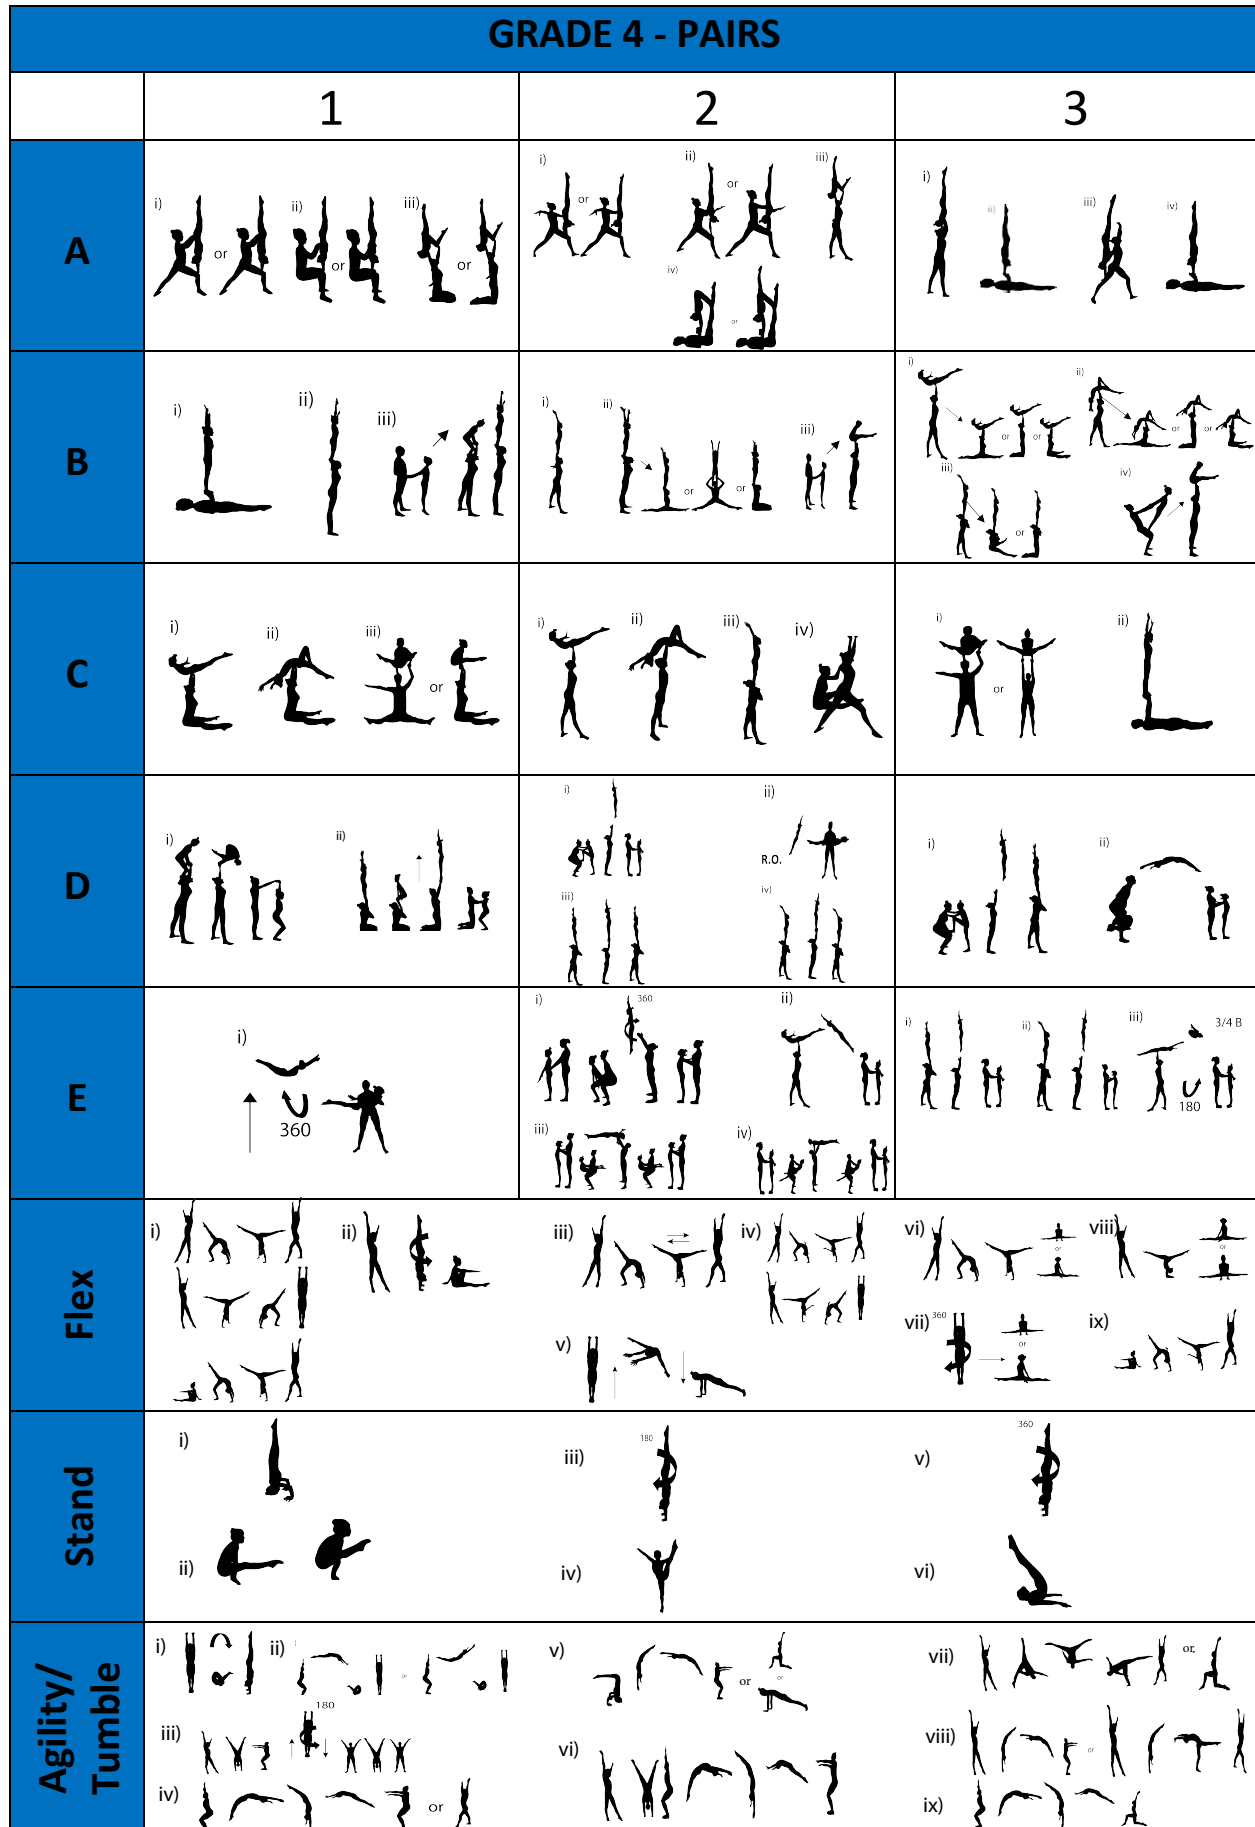 GRADE 4 - PAIRS
1 2 3
A
i) or ii) or iii) or
i) or ii) or iii)
iv) or
i) ii) iii) iv)
B
i) ii) iii)
i) ii) or or iii)
i) or or ii) or or
iii) or iv)
C
i) ii) iii) or
i) ii) iii) iv)
i) or ii)
D
i) ii)
i) ii) R.O.
iii) iv)
i) ii)
E
i) 360
i) 360 ii)
iii) iv)
i) ii) iii) 3/4 B
180
Flex
i) ii) iii) iv) vi) or viii) or
v) vii) 360 or ix)
Stand
i) iii) 180 v) 360
ii) iv) vi)
Agility/
Tumble
i) ii) or v) or or vii) or,
iii) 180 vi) viii) or
iv) or ix)